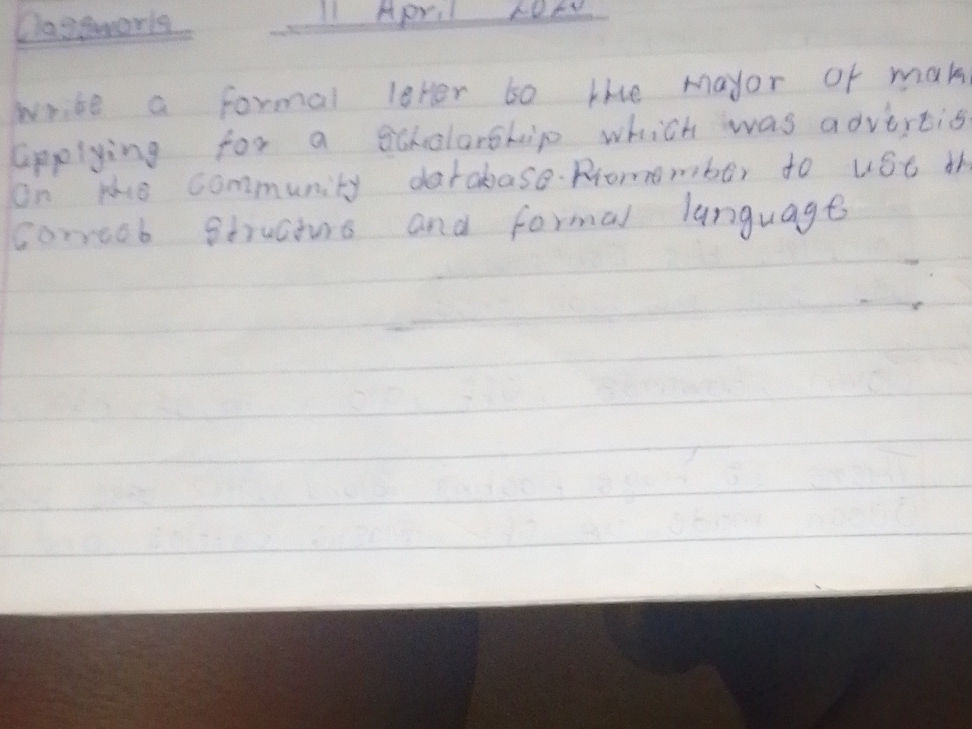 Classwork 11 April
Write a formal letter to the mayor of
applying for a scholarship which was
on the community database. Rememeber to use
correct structure and formal language